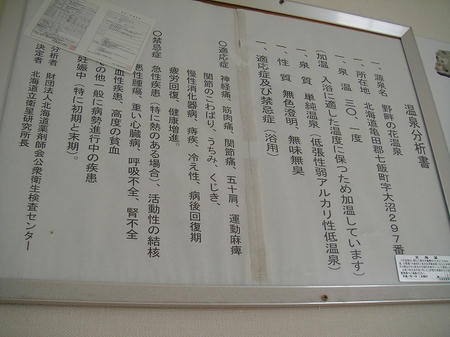 温泉分析書
一、源泉名 野畔の花温泉
一、所在地 北海道亀田郡七飯町字大沼297番
一、泉温 三〇、一度
(加温 入浴に適した温度に保つため加温しています)
一、泉質 単純温泉(低張性弱アルカリ性低温泉)
一、性質 無色澄明、無味無臭
一、適応症及び禁忌症(浴用)
〇適応症 神経痛、筋肉痛、関節痛、五十肩、運動麻痺
関節のこわばり、うちみ、くじき、
慢性消化器病、痔疾、冷え性、病後回復期
疲労回復、健康増進。
〇禁忌症 急性疾患(特に熱のある場合)、活動性の結核
悪性腫瘍、重い心臓病、呼吸不全、腎不全
血性疾患、高度の貧血
その他一般に病勢進行中の疾患
妊娠中(特に初期と末期)。
分析者 財団法人北海道薬剤師会公衆衛生検査センター
決定者 北海道立衛生研究所長